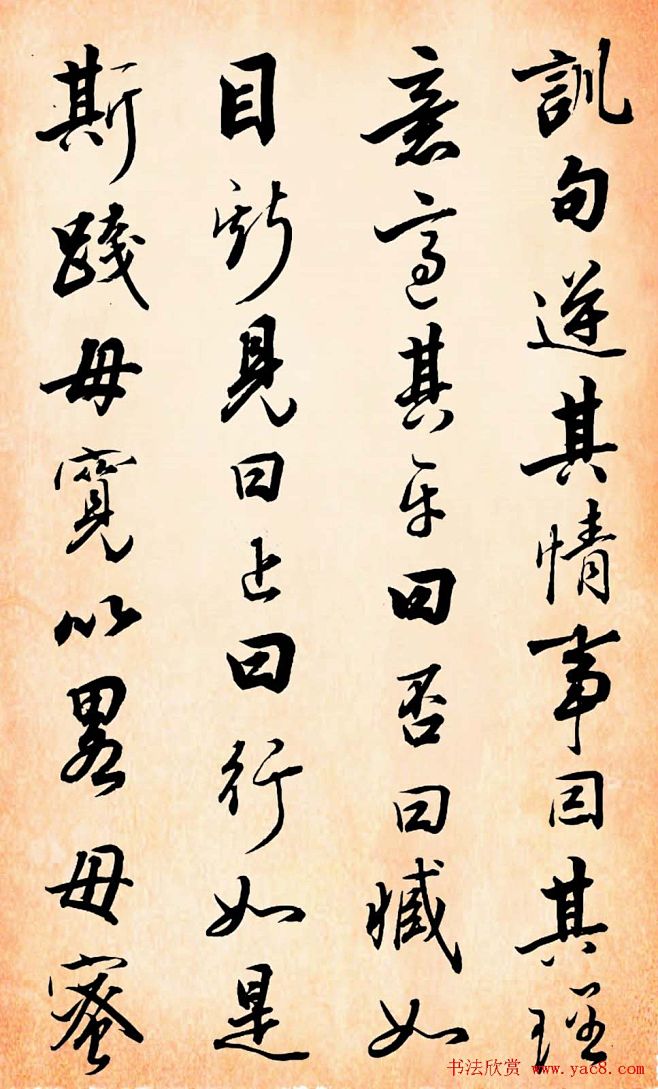 訓句其情事因其理
意適其曰否曰臧如
目見曰止曰行如是
斯踐毋寬以畧毋蜜
书法欣赏 www.yac8.com